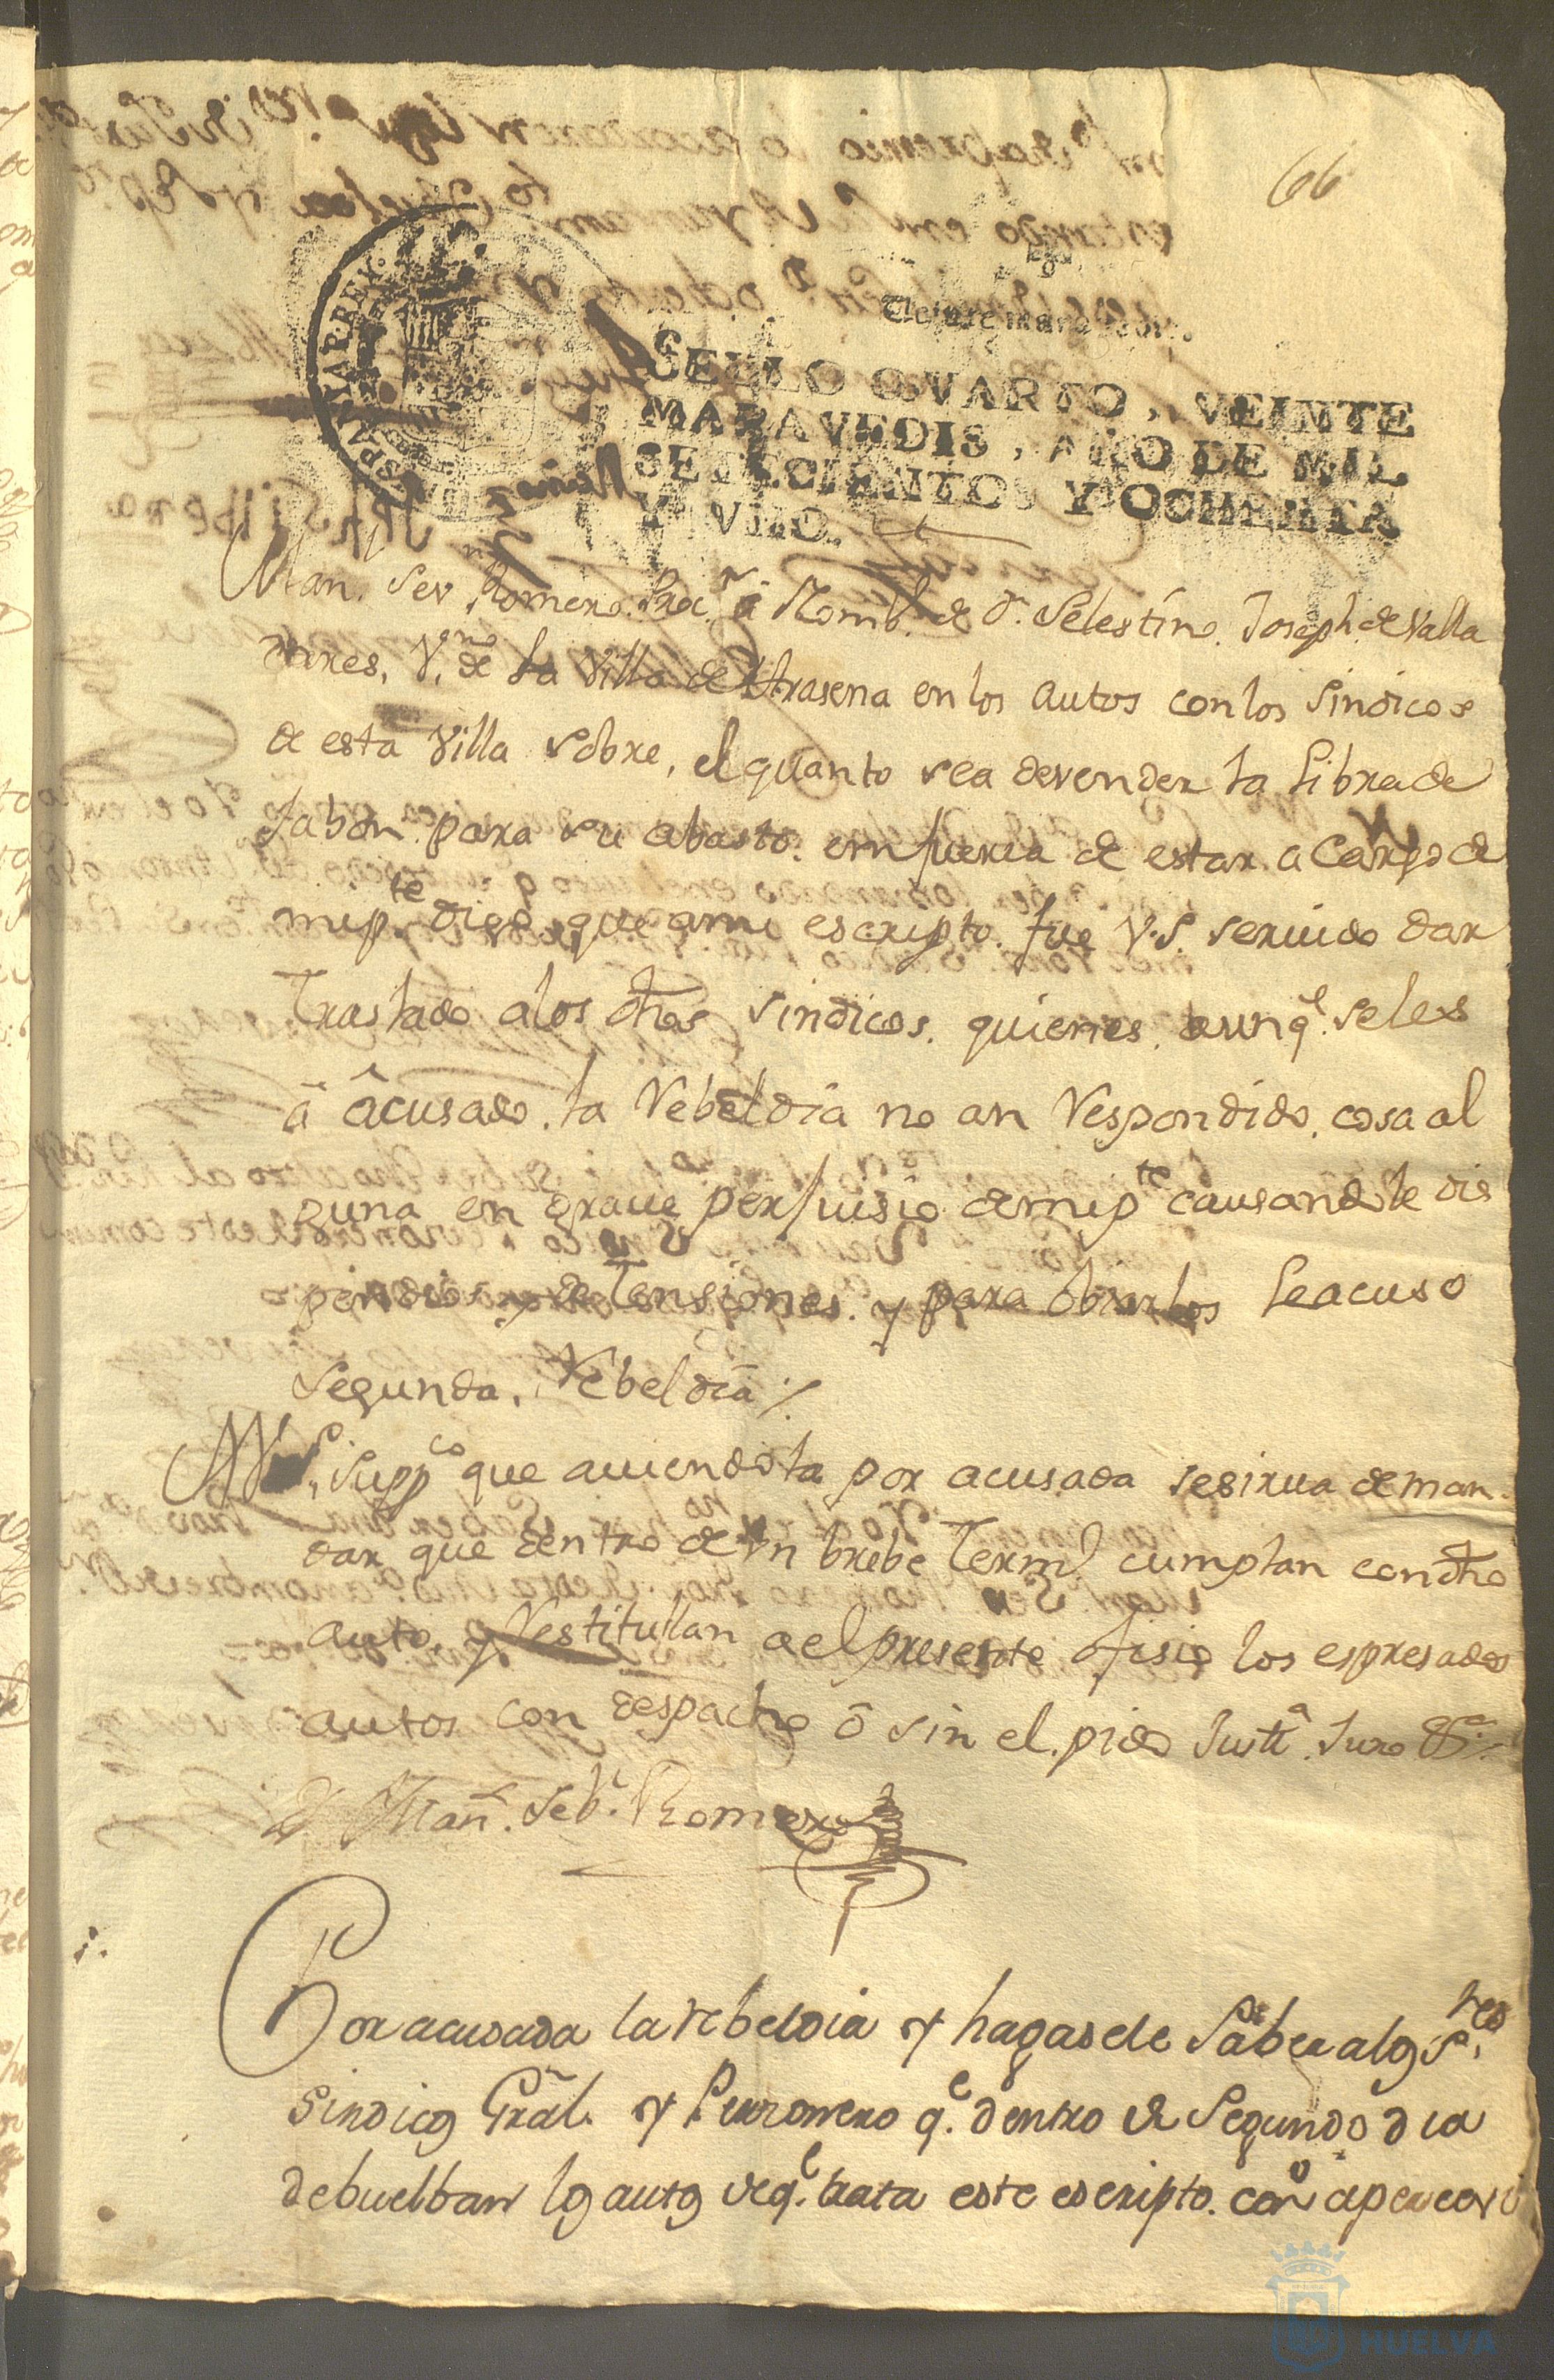 66
Veinte maravedis.
SELLO QVARTO, VEINTE
MARAVEDIS, AÑO DE MIL
SETECIENTOS Y OCHENTA
Y VNO.
Man. Sev.n Romero Proc.r â Nomb.e de D.n Selestino Joseph de Valla
dares, V.no de la Villa de Arasena en los autos con los Sindicos
de esta Villa sobre, el quanto sea devender la libra de
Jabon para su abasto. en fuersa de estar a Cargo de
mi p.te digo que a mi escripto. fue V.S. seruido dar
Traslado a los dhos sindicos. quienes, aunq.e seles
â âcusado. la Rebeldia no an Respondido. cosa al
guna en graue perjuisio demi p.te causandole dis
pendios y de tensiones. y para obiarlos le acuso
Segunda, Rebeldia /.
A V.S. Supp.co que auiendola por acusada sesirua de man
dar que dentro de Vn brebe Term.o cumplan con dho
auto, y Restitullan a el presente ofisio los espresados
autos con despacho ô sin el. pido Just.a Juro &.a /.
Man.l Seb.n Romero
Por acusada la rebeldia y hagasele Saber a los S.res
Sindicos Gral. y Personero q.e dentro de Segundo dia
debuelban los autos de q.e trata este escripto. con aperceví
HUELVA